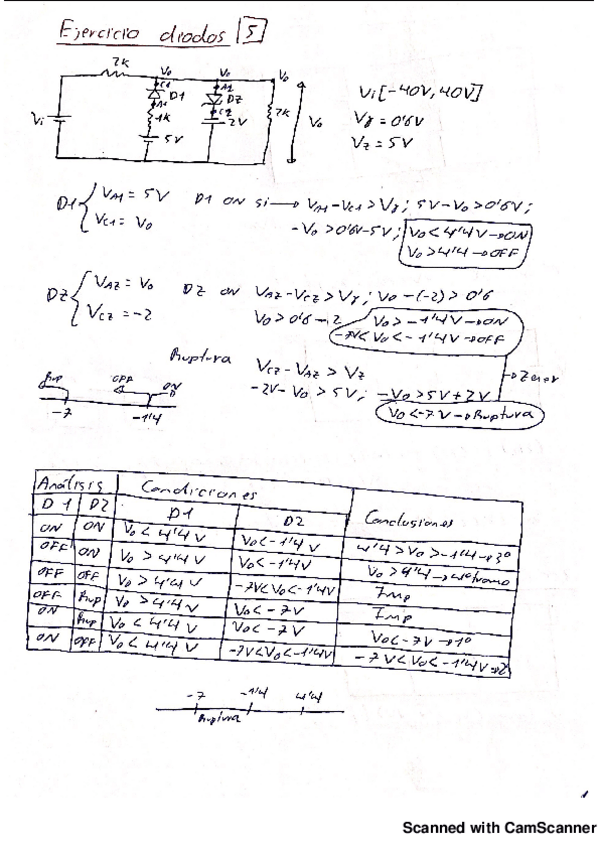 Ejercicio diodos 5
2K
Vo
Vo
Vo
C1
D1
A1
1K
5V
DZ
CZ
2V
2K
Vo
Vi
Vi[-40V, 40V]
Vγ = 0'6V
Vz = 5V
D1 { VA1 = 5V
VC1 = Vo
D1 ON si → VA1-VC1 > Vγ; 5V-Vo > 0'6V;
-Vo > 0'6V-5V; Vo < 4'4V → ON
Vo > 4'4 → OFF
DZ { VAZ = Vo
VCZ = -2
DZ ON VAZ-VCZ > Vγ; Vo -(-2) > 0'6
Vo > 0'6-2 Vo > -1'4V → ON
-7V < Vo < -1'4V → OFF
Ruptura VCZ - VAZ > Vz
-2V-Vo > 5V; -Vo > 5V+2V
→ Zener
Vo < -7V → Ruptura
Rup OFF ON
-7 -1'4
Análisis Condiciones Conclusiones
D1 D2 D1 D2
ON ON Vo < 4'4 V Vo < -1'4 V 4'4 > Vo > -1'4 → 3º
OFF ON Vo > 4'4 V Vo < -1'4 V Vo > 4'4 → 4º tramo
OFF OFF Vo > 4'4 V -7V < Vo < -1'4V Imp
OFF Rup Vo > 4'4 V Vo < -7V Imp
ON Rup Vo < 4'4 V Vo < -7V Vo < -7V → 1º
ON OFF Vo < 4'4 V -7V < Vo < -1'4V -7V < Vo < -1'4V → 2
-7 -1'4 4'4
Ruptura
1
Scanned with CamScanner